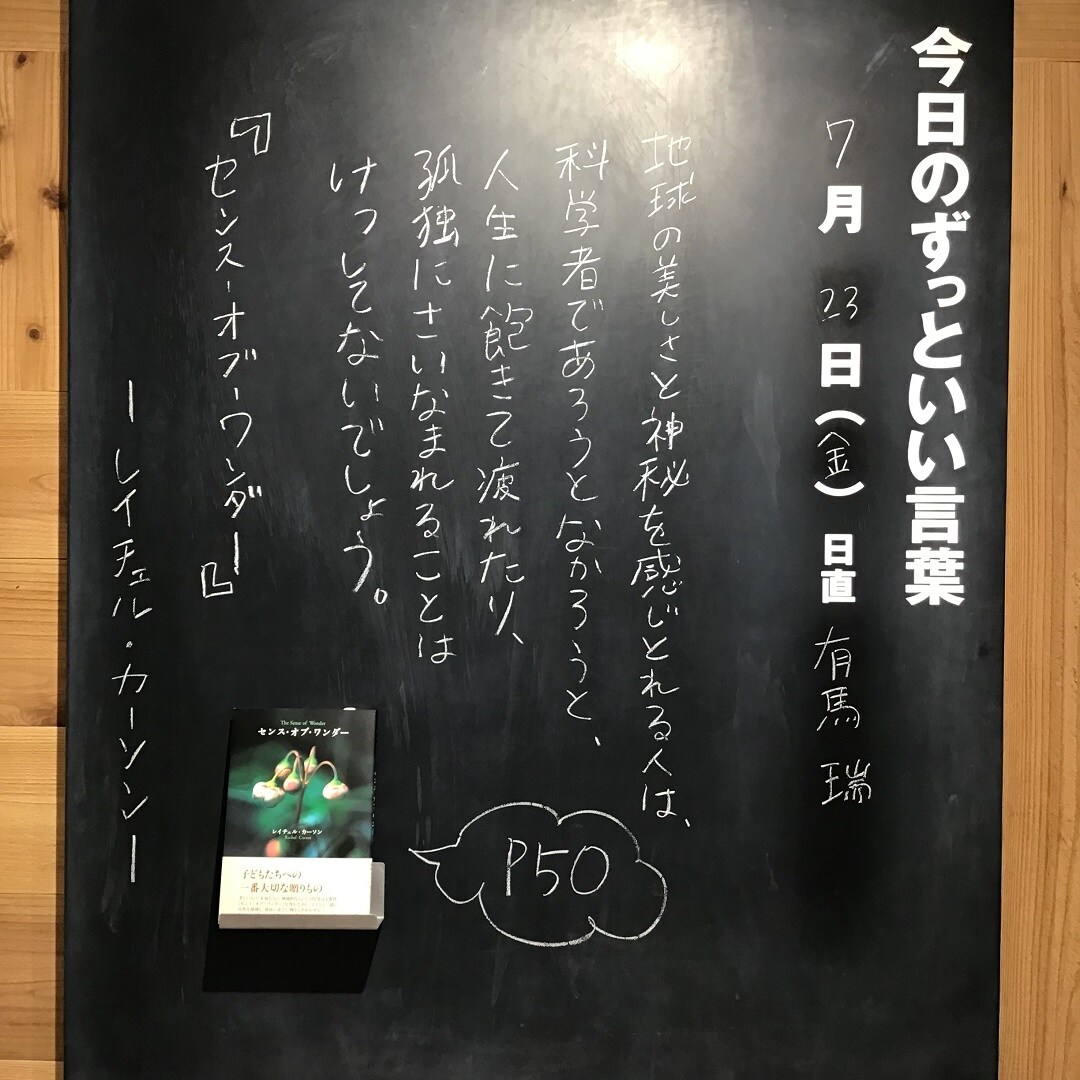 今日のずっといい言葉
7月23日(金)日直 有馬 瑞
地球の美しさと神秘を感じとれる人は、
科学者であろうとなかろうと、
人生に飽きて疲れたり、
孤独にさいなまれることは
けっしてないでしょう。
『センス・オブ・ワンダー』
ーレイチェル・カーソンー
The Sense of Wonder
センス・オブ・ワンダー
レイチェル・カーソン
Rachel Carson
子どもたちへの
一番大切な贈りもの
P50